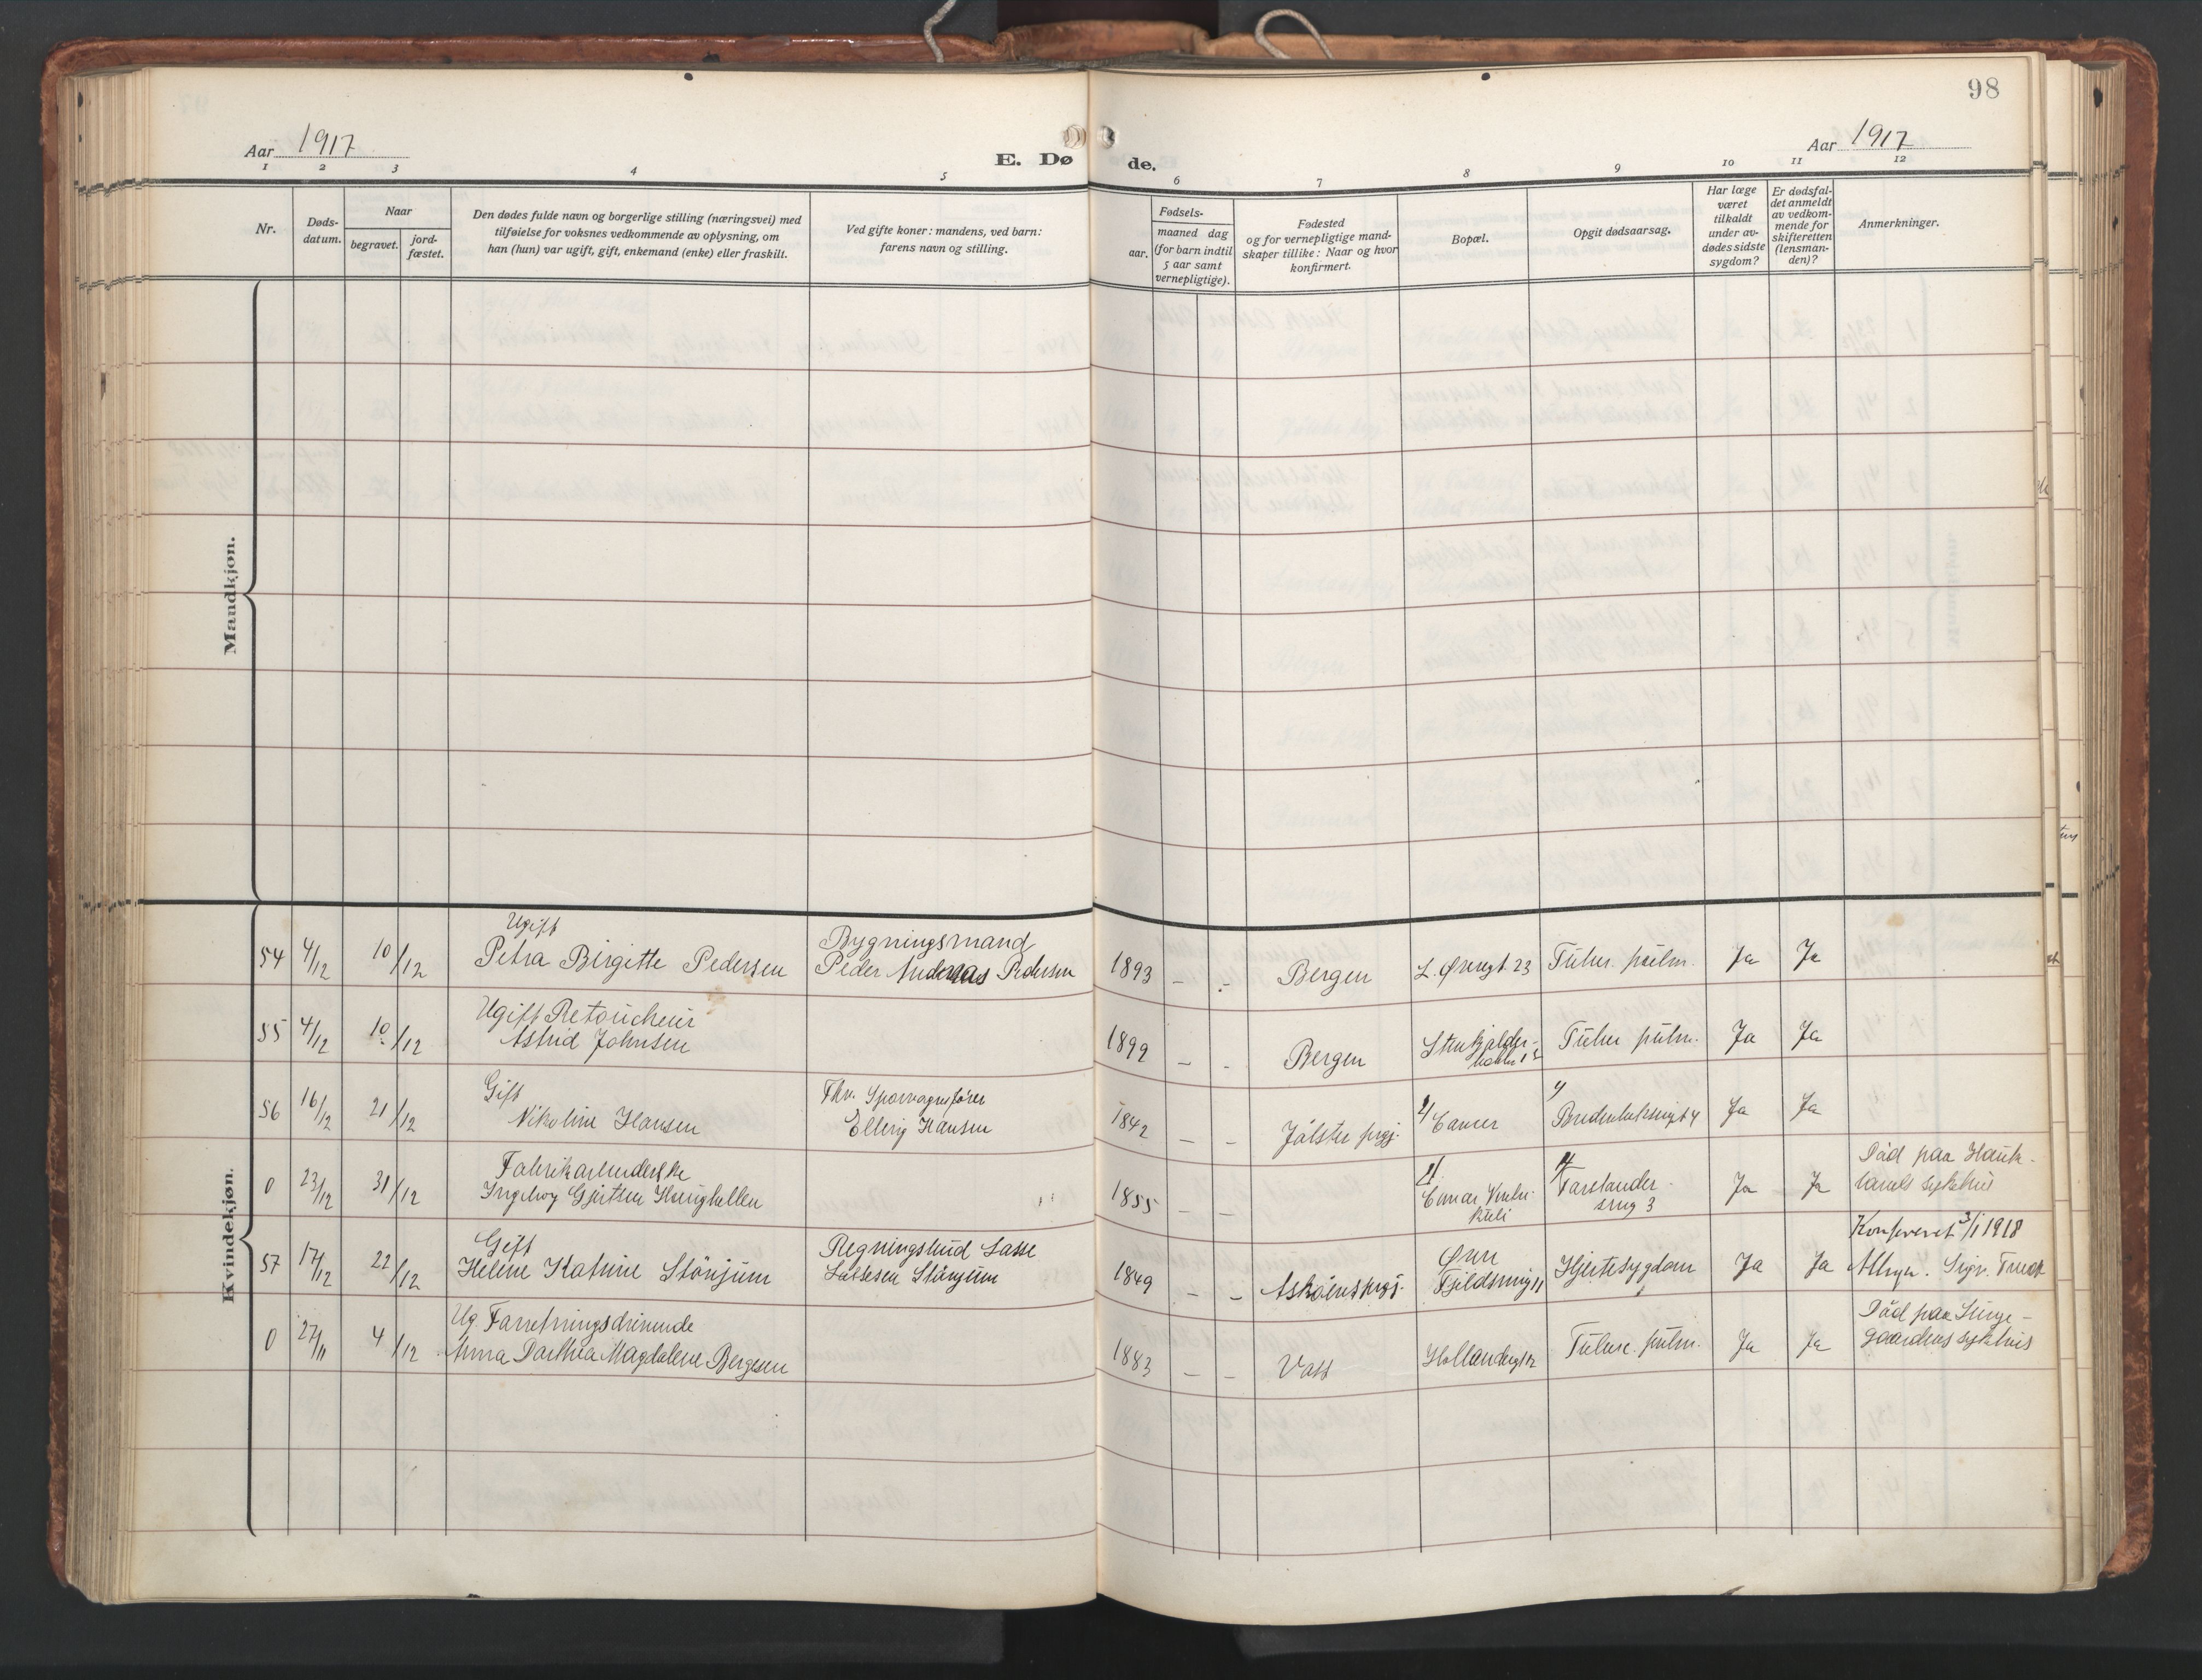 98
Aar 1917
E. Dø de.
Aar 1917
1 2 3 4 5 6 7 8 9 10 11 12
Nr.
Døds-
datum.
Naar
begravet.
jord-
fæstet.
Den dødes fulde navn og borgerlige stilling (næringsvei) med
tilføielse for voksnes vedkommende av oplysning, om
han (hun) var ugift, gift, enkemand (enke) eller fraskilt.
Ved gifte koner: mandens, ved barn:
farens navn og stilling.
Fødsels-
aar.
maaned dag
(for barn indtil
5 aar samt
vernepligtige).
Fødested
og for vernepligtige mand-
skaper tillike: Naar og hvor
konfirmert.
Bopæl.
Opgit dødsaarsag.
Har læge
været
tilkaldt
under av-
dødes sidste
sygdom?
Er dødsfal-
det anmeldt
av vedkom-
mende for
skifteretten
(lensman-
den)?
Anmerkninger.
Mandkjøn.
Kvindekjøn.
Ugift
54 4/12 10/12 Petra Birgitte Pedersen
Bygningsmand
Peder Andreas Pedersen
1893 - - Bergen L. Øvregt. 23 Tuber. pulm. Ja Ja
Ugift Retoucheur
55 4/12 10/12 Astrid Johnsen
1899 - - Bergen Tuber pulm. Ja Ja
Gift
56 16/12 21/12 Nikoline Hansen
Fhv. Sporvognsfører
Elling Hansen
1842 - - Jølster prgj. 2/ Cancer 1/ Ja Ja
Fabrikarbeiderske
0 23/12 31/12 Ingeborg Gjertsen Haughellen
1855 - - 2/ 1/ Ja Ja
Död paa Hauke-
lands sykehus
Gift
57 17/12 22/12 Helene Katrine Stönjum
Regningsbud Lasse
Lassesen Stönjum
1849 - - Askövold prgj. Øvre
Fjeldsmug 11 Hjertesygdom Ja Ja
Konfereret 3/1 1918
Ug. Forretningsdrivende
0 27/11 4/12 Anna Dorthea Magdalene Bergesen
1883 - - Voss Hollendergt 12 Tuberc. pulm. Ja Ja
Död paa Lunge-
gaardens sykehus